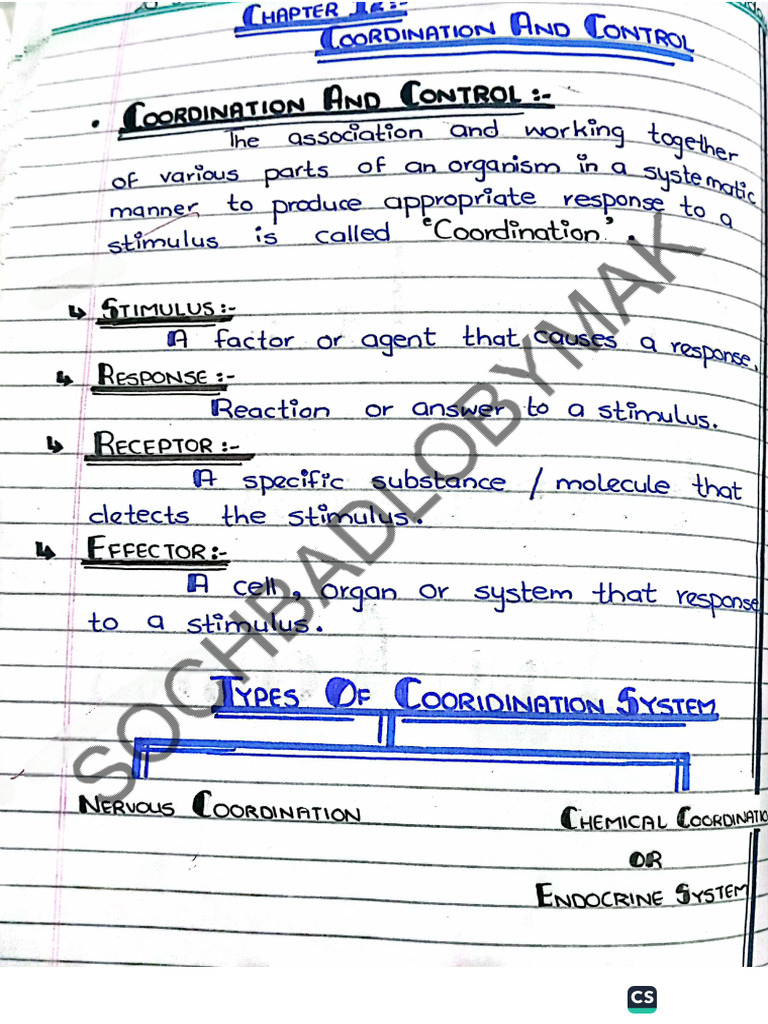 CHAPTER 12:-
COORDINATION AND CONTROL
• COORDINATION AND CONTROL:-
The association and working together
of various parts of an organism in a systematic
manner to produce appropriate response to a
stimulus is called "Coordination".
↳ STIMULUS:-
A factor or agent that causes a response.
↳ RESPONSE:-
Reaction or answer to a stimulus.
↳ RECEPTOR:-
A specific substance / molecule that
detects the stimulus.
↳ EFFECTOR:-
A cell, organ or system that response
to a stimulus.
TYPES OF COORIDINATION SYSTEM
NERVOUS COORDINATION
CHEMICAL COORDINATIO
OR
ENDOCRINE SYSTEM
SOCHBADLOBYMAK
CS